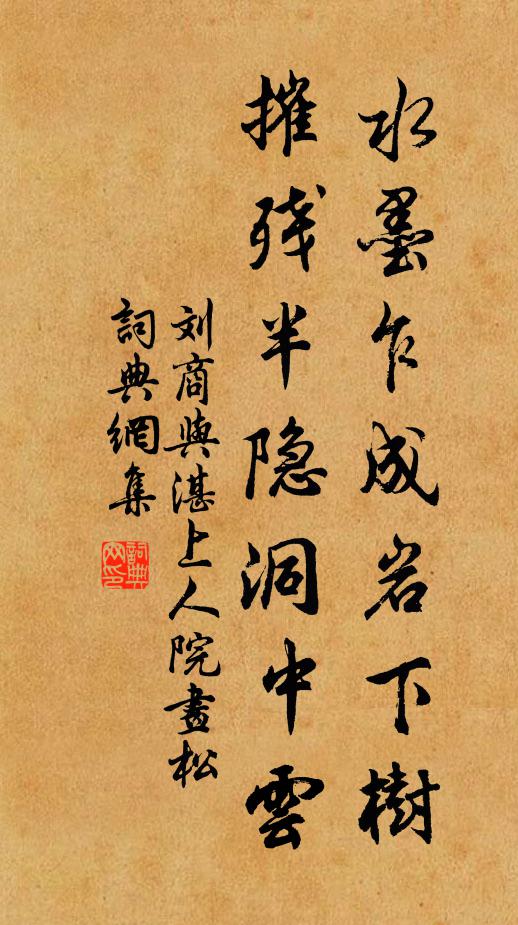 水墨乍成岩下樹
摧残半隐洞中雲
刘商與湛上人院畫松
詞典網集
詞典
网印